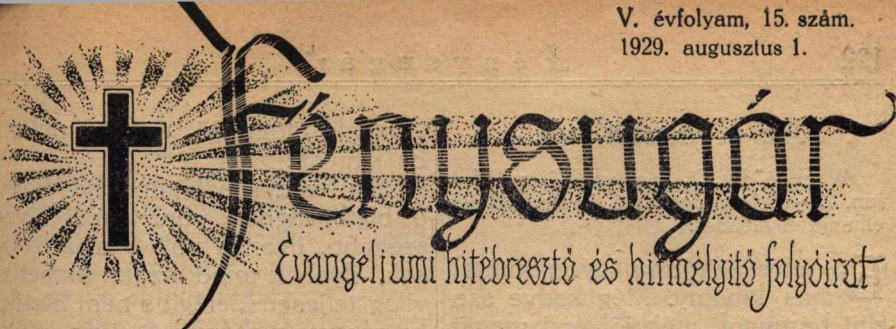 V. évfolyam, 15. szám.
1929. augusztus 1.
Fénysugár
Evangéliumi hitébresztő és hitmélyitő folyóirat